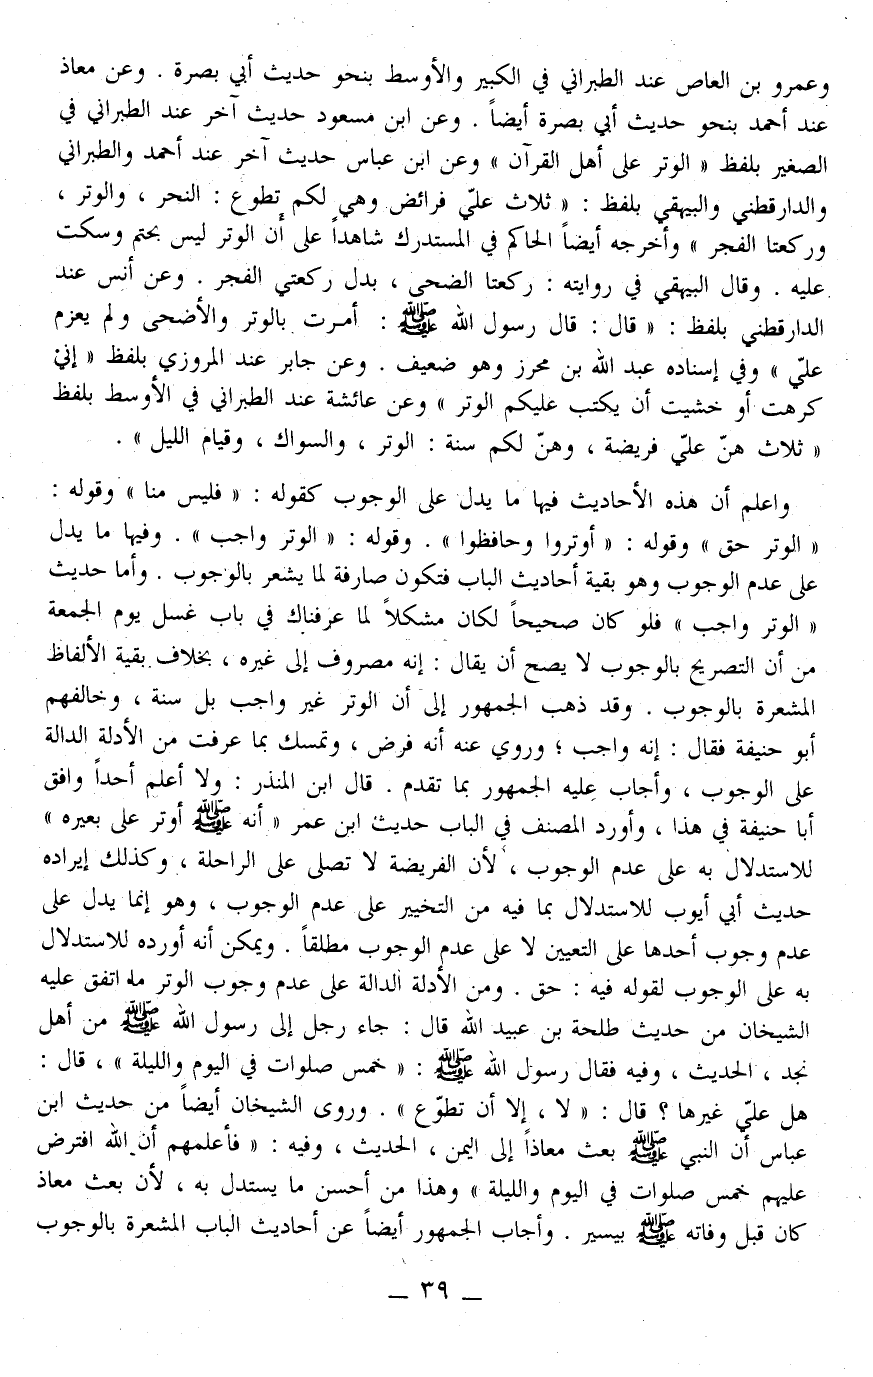 وعمرو بن العاص عند الطبراني في الكبير والأوسط بنحو حديث أبي بصرة . وعن معاذ
عند أحمد بنحو حديث أبي بصرة أيضاً . وعن ابن مسعود حديث آخر عند الطبراني في
الصغير بلفظ « الوتر على أهل القرآن » وعن ابن عباس حديث آخر عند أحمد والطبراني
والدارقطني والبيهقي بلفظ : « ثلاث عليّ فرائض وهي لكم تطوع : النحر ، والوتر ،
وركعتا الفجر » وأخرجه أيضاً الحاكم في المستدرك شاهداً على أن الوتر ليس بحتم وسكت
عليه . وقال البيهقي في روايته : ركعتا الضحى ، بدل ركعتي الفجر . وعن أنس عند
الدارقطني بلفظ : « قال : قال رسول الله ﷺ : أمرت بالوتر والأضحى ولم يعزم
عليّ » وفي إسناده عبد الله بن محرز وهو ضعيف . وعن جابر عند المروزي بلفظ « إنيْ
كرهت أو خشيت أن يكتب عليكم الوتر » وعن عائشة عند الطبراني في الأوسط بلفظ
« ثلاث هنّ عليّ فريضة ، وهنّ لكم سنة : الوتر ، والسواك ، وقيام الليل » .
واعلم أن هذه الأحاديث فيها ما يدل على الوجوب كقوله : « فليس منا » وقوله :
« الوتر حق » وقوله : « أوتروا وحافظوا » . وقوله : « الوتر واجب » . وفيها ما يدل
على عدم الوجوب وهو بقية أحاديث الباب فتكون صارفة لما يشعر بالوجوب . وأما حديث
« الوتر واجب » فلو كان صحيحاً لكان مشكلاً لما عرفناك في باب غسل يوم الجمعة
من أن التصريح بالوجوب لا يصح أن يقال : إنه مصروف إلى غيره ، بخلاف بقية الألفاظ
المشعرة بالوجوب . وقد ذهب الجمهور إلى أن الوتر غير واجب بل سنة ، وخالفهم
أبو حنيفة فقال : إنه واجب ؛ وروي عنه أنه فرض ، وتمسك بما عرفت من الأدلة الدالة
على الوجوب ، وأجاب عليه الجمهور بما تقدم . قال ابن المنذر : ولا أعلم أحداً وافق
أبا حنيفة في هذا ، وأورد المصنف في الباب حديث ابن عمر « أنه ﷺ أوتر على بعيره »
للاستدلال به على عدم الوجوب ، لأن الفريضة لا تصلى على الراحلة ، وكذلك إيراده
حديث أبي أيوب للاستدلال بما فيه من التخيير على عدم الوجوب ، وهو إنما يدل على
عدم وجوب أحدها على التعيين لا على عدم الوجوب مطلقاً . ويمكن أنه أورده للاستدلال
به على الوجوب لقوله فيه : حق . ومن الأدلة الدالة على عدم وجوب الوتر ما اتفق عليه
الشيخان من حديث طلحة بن عبيد الله قال : جاء رجل إلى رسول الله ﷺ من أهل
نجد ، الحديث ، وفيه فقال رسول الله ﷺ : « خمس صلوات في اليوم والليلة » ، قال :
هل عليّ غيرها ؟ قال : « لا ، إلا أن تطوّع » . وروى الشيخان أيضاً من حديث ابن
عباس أن النبي ﷺ بعث معاذاً إلى اليمن ، الحديث ، وفيه : « فأعلمهم أن الله افترض
عليهم خمس صلوات في اليوم والليلة » وهذا من أحسن ما يستدل به ، لأن بعث معاذ
كان قبل وفاته ﷺ بيسير . وأجاب الجمهور أيضاً عن أحاديث الباب المشعرة بالوجوب
— ٣٩ —